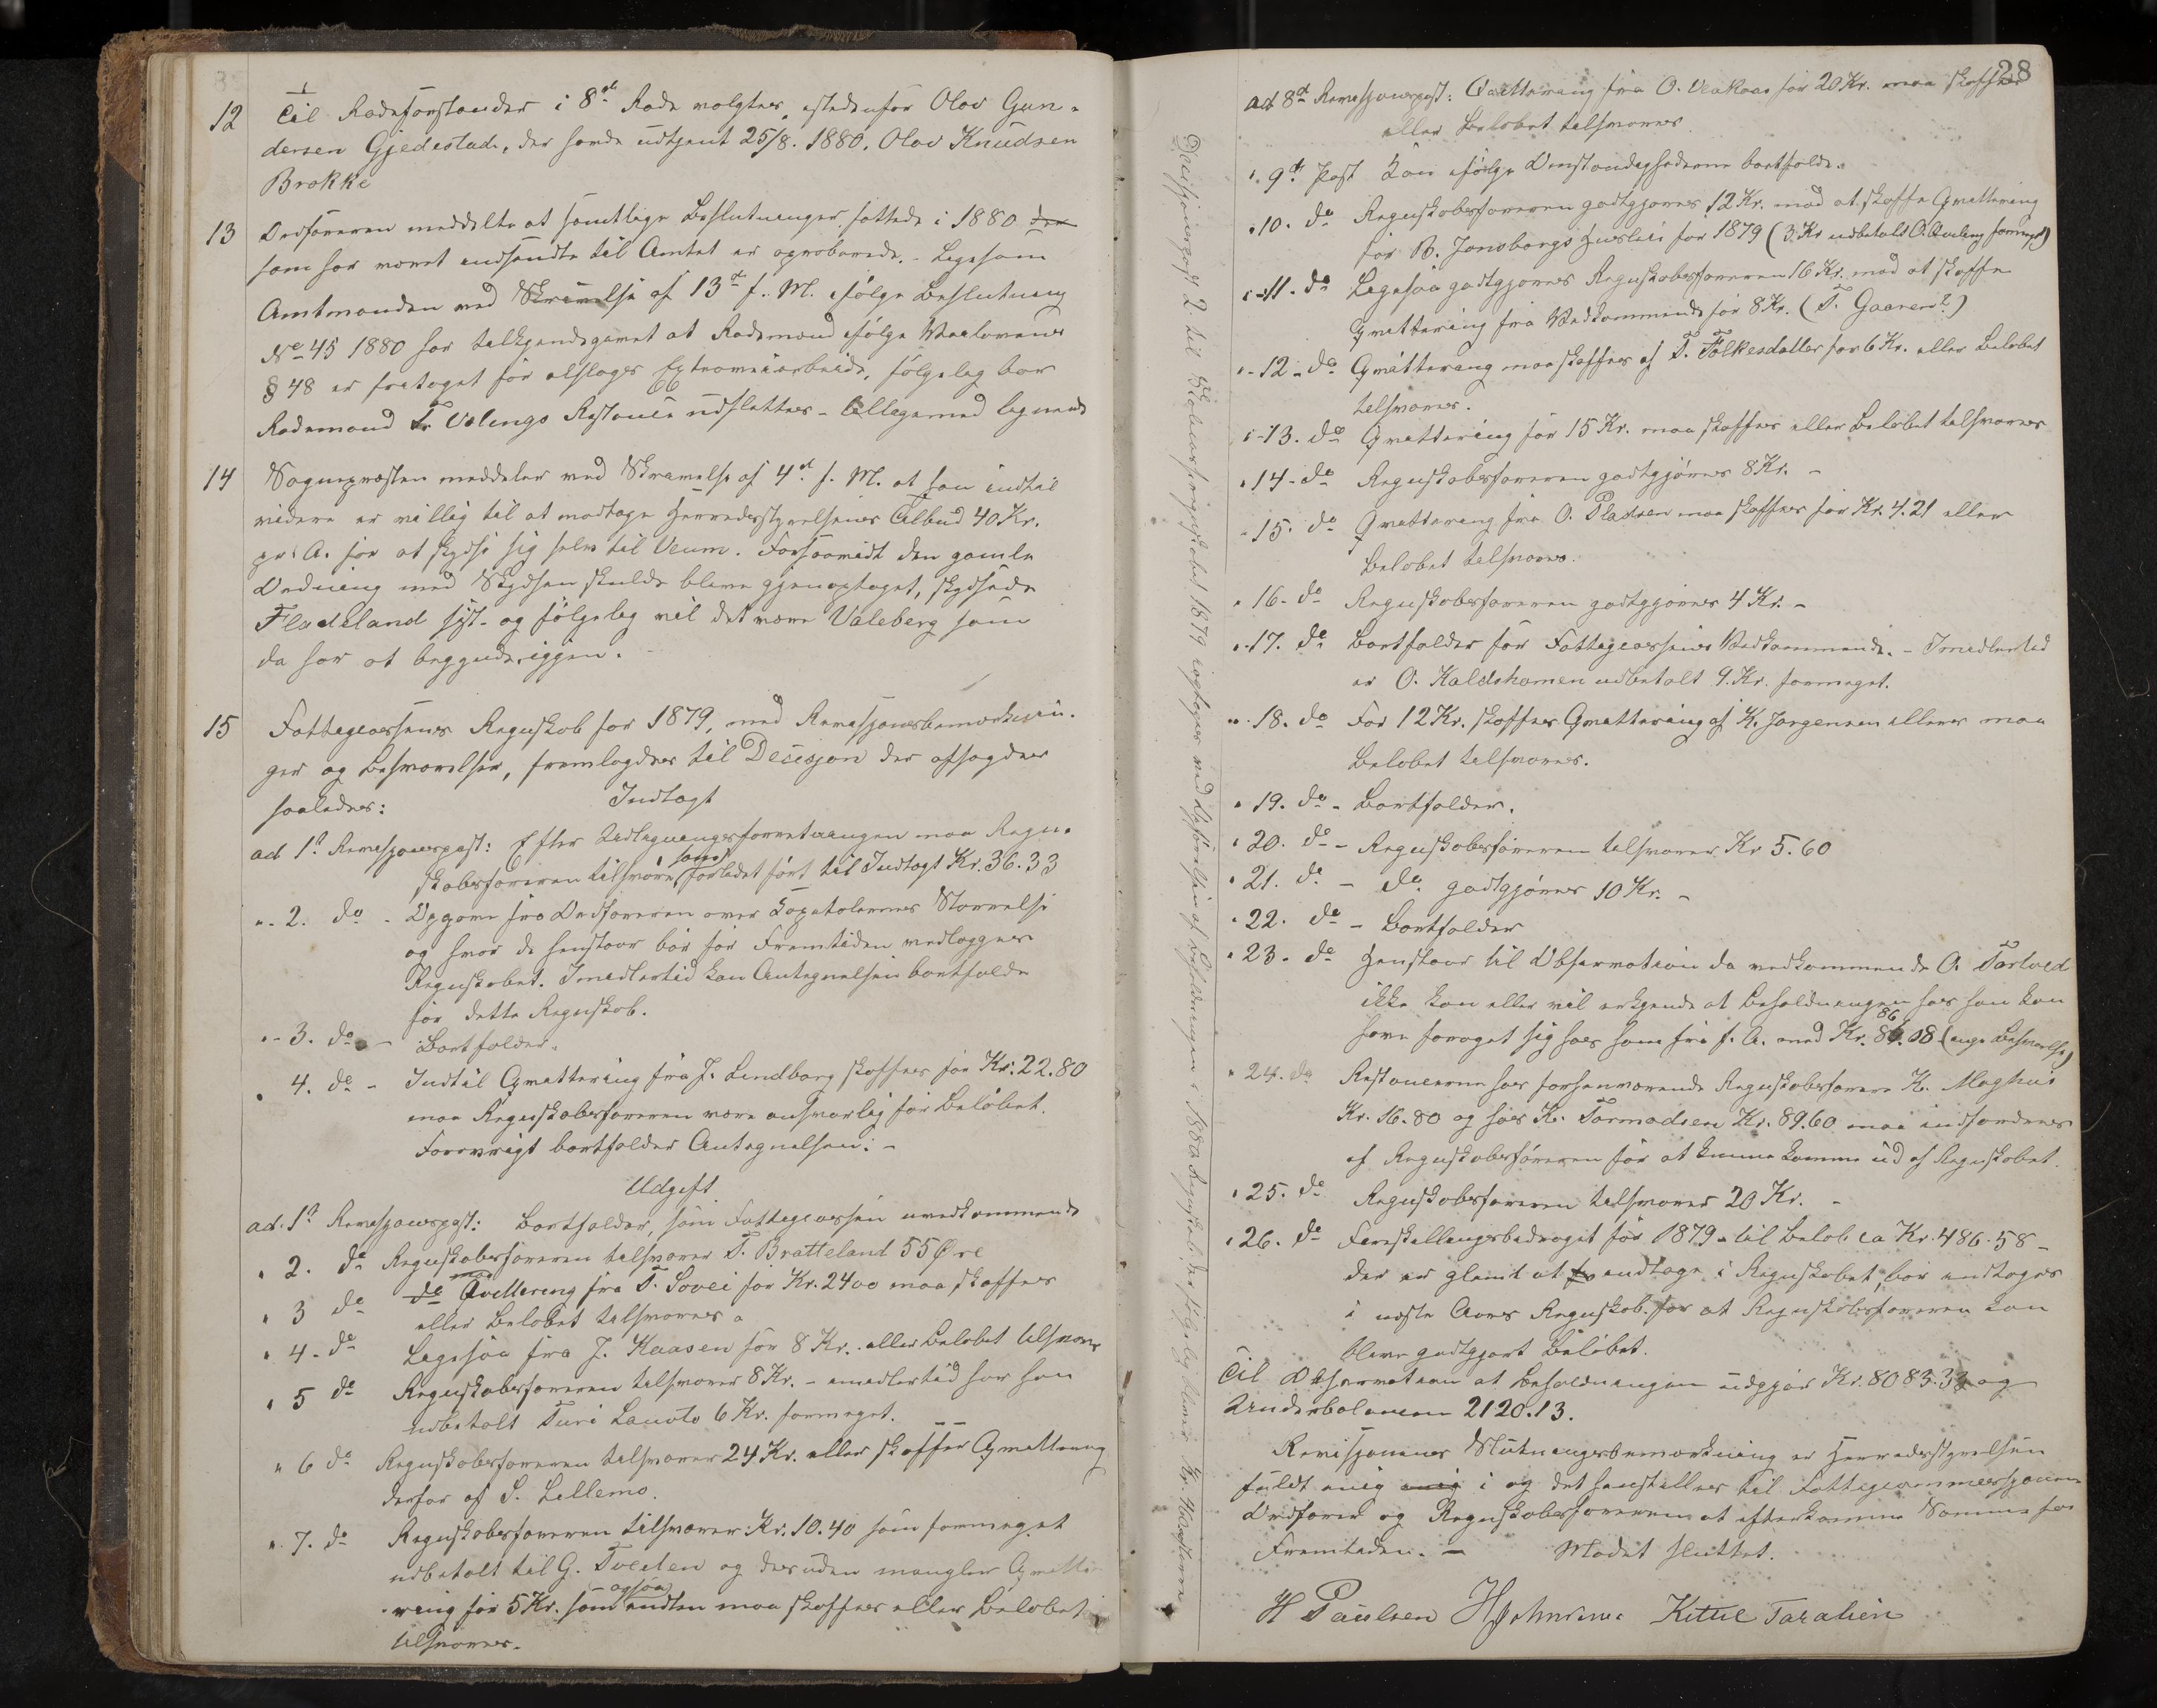 12 Til Rodeforstander i 8de Rode valgtes istedenfor Olav Gun-
dersen Gjedestad, der havde udtjent 25/8. 1880. Olav Knudsen
Brokke
13 Ordføreren meddelte at samtlige Beslutninger fattede i 1880
som har været indsendte til Amtet er aproberede. - Ligesom
Amtmanden ved Skrivelse af 13de f. M. ifølge Beslutning
No 45 1880 har tilkjendegivet at Rodemand ifølge Veilovens
§ 48 er fritaget for alslags Extraveiarbeide, følgelig bør
Rodemand Tr. Valings Restance udslettes - Tilligemed lignende
14 Sognepræsten meddeler ved Skrivelse af 4de f. M. at han indtil
videre er villig til at modtage Herredsstyrelsens Tilbud 40 Kr.
pr. A. for at skydse sig selv til Veum. Forsaavidt den gamle
Ordning med Skydsen skulde blive gjenoptaget, skydsede
Fladeland sist - og følgelig vil det være Valeberg som
da har at begynde igjen. -
15 Fattigcassens Regnskab for 1879, med Revisjonsbemærknin-
ger og Besvarelser, fremlagdes til Decisjon der afsagdes
saaledes: Indtægt
ad 1ste Revisjonspost: Efter Udligningsforretningen maa Regn-
skabsføreren tilsvare som forladet ført til Indtægt Kr. 36.33
" 2. do - Opgave fra Ordføreren over Capitalernes Størrelse
og hvor de henstaar bør for Fremtiden vedlægges
Regnskabet. Imidlertid kan Antegnelsen bortfalde
for dette Regnskab.
" 3. do - Bortfalder.
" 4. do - Indtil Qvittering fra J. Lindborg skaffes for Kr. 22.80
maa Regnskabsføreren være ansvarlig for Beløbet.
Forøvrigt bortfalder Antegnelsen. -
Udgift
ad. 1ste Revisjonspost: Bortfalder, som Fattigcassen uvedkommende
" 2. do Regnskabsføreren tilsvarer T. Bratteland 55 Øre
" 3 do do Qvittering fra T. Sovei for Kr. 24oo maa skaffes
eller Beløbet tilsvares
" 4. do Ligesaa fra J. Kaasen for 8 Kr. eller Beløbet tilsvares
" 5 do Regnskabsføreren tilsvarer 8 Kr. - imidlertid har han
udbetalt Turi Lauvto 6 Kr. formeget.
" 6 do Regnskabsføreren tilsvarer 24 Kr. eller skaffer Qvittering
derfor af S. Lillemo.
" 7. do Regnskabsføreren tilsvarer Kr. 10.40 som formeget
udbetalt til G. Tveiten og desuden mangler Qvitte-
ring for 5 Kr. som ogsaa enten maa skaffes eller Beløbet
tilsvares.
28
ad 8de Revisjonspost: Qvittering fra O. Veakaas for 20 Kr. maa skaffes
eller Beløbet tilsvares
" 9de Post kan ifølge Omstændighederne bortfalde.
" 10. do Regnskabsføreren godtgjøres 12 Kr. mod at skaffe Qvittering
for B. Jonsborgs Husleie for 1879 (3 Kr udbetalt formeget)
" 11. do Ligesaa godtgjøres Regnskabsføreren 16 Kr. mod at skaffe
Qvittering fra Vedkommende for 8 Kr. (T. Gaaren?)
" 12. do Qvittering maa skaffes af T. Folkesdatter for 6 Kr. eller Beløbet
tilsvares.
" 13. do Qvittering for 15 Kr. maa skaffes eller Beløbet tilsvares
" 14. do Regnskabsføreren godtgjøres 8 Kr. -
" 15. do Qvittering fra O. Pladsen maa skaffes for Kr. 4.21 eller
Beløbet tilsvares.
" 16. do Regnskabsføreren godtgjøres 4 Kr. -
" 17. do Bortfalder for Fattigcassens Vedkommende. - Imidlertid
er O. Kaldshomen udbetalt 9. Kr. formeget.
" 18. do For 12 Kr. skaffes Qvittering af K. Jørgensen ellers maa
Beløbet tilsvares.
" 19. do - Bortfalder.
" 20. do - Regnskabsføreren tilsvarer Kr 5.60
" 21. do - do godtgjøres 10 Kr. -
" 22. do - Bortfalder
" 23. do Henstaar til Observation da vedkommende O. Tortveit
ikke kan eller vil erkjende at Beholdningen hos han kan
have forøget sig hos ham fra f. A. med Kr. 86.08 (Besvarelse)
" 24. do Restancerne hos forhenværende Regnskabsfører K. Moghus
Kr. 16.80 og hos K. Tarmodsen Kr. 89.60 maa indfordres
af Regnskabsføreren for at kunne komme ud af Regnskabet.
" 25. do Regnskabsføreren tilsvarer 20 Kr. -
" 26. do Forestillingsbidraget for 1879 - til Beløb ca Kr. 486.58 -
der er glemt at indtage i Regnskabet, bør indtages
i næste Aars Regnskab for at Regnskabsføreren kan
blive godtgjort Beløbet.
Til Observation at Beholdningen udgjør Kr. 8083.33 og
Underbalancen 2120.13.
Revisjonens Slutningsbemærkning er Herredsstyrelsen
fuldt enig i og det henstilles til Fattigcommissjonens
Ordfører og Regnskabsføreren at efterkomme Samme for
Fremtiden. - Mødet sluttet.
H Paulsen Kittil Taraldsen
Decisjonspost 2 til 1879 iagttages ved Opførelsen af Beholdningen i 1880